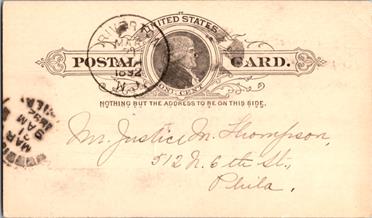 UNITED STATES
POSTAL CARD.
ONE CENT
1892
N.J.
NOTHING BUT THE ADDRESS TO BE ON THIS SIDE.
MAR
AM
Mr. Justice M. Thompson,
512 N. 6th St.,
Phila.